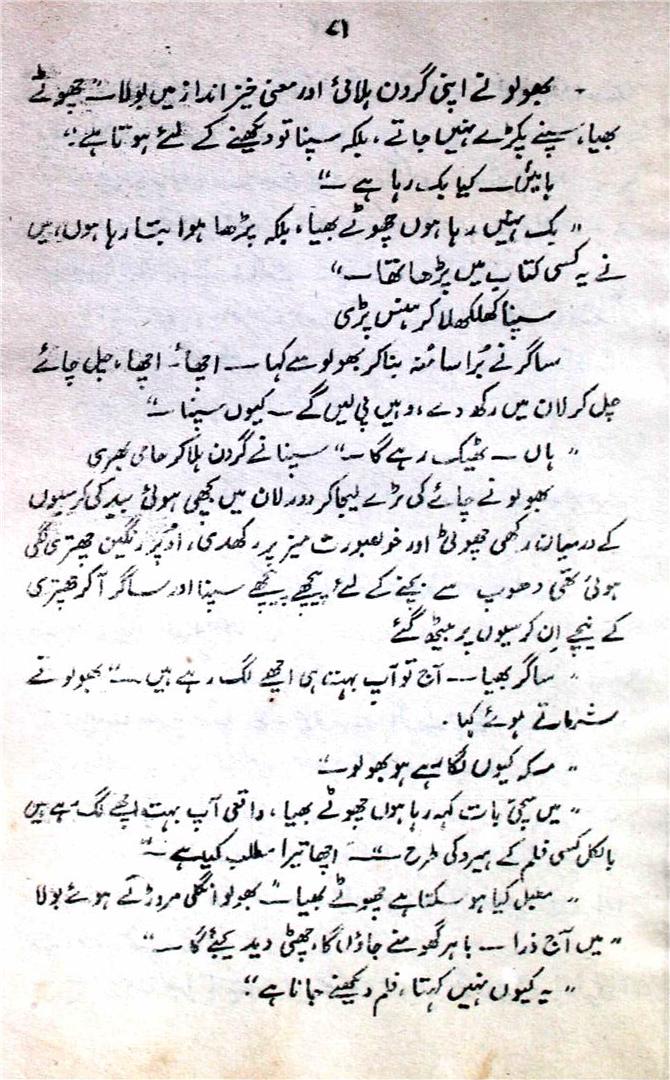 ۸۱
بھولو نے اپنی گردن ہلائی اور معنی خیز انداز میں بولا۔ "چھوٹے
بھیا، سپنے پکڑے نہیں جاتے، بلکہ سپنا تو دیکھنے کے لئے ہوتا ہے۔"
ہائیں۔ کیا بک رہا ہے۔"
"بک نہیں رہا ہوں چھوٹے بھیا، بلکہ پڑھا ہوا بتا رہا ہوں، میں
نے یہ کسی کتاب میں پڑھا تھا۔"
سپنا کھلکھلا کر ہنس پڑی
ساگر نے بُرا سا منہ بنا کر بھولو سے کہا۔ اچھا۔ اچھا، چل چائے
چل کر لان میں رکھ دے، وہیں پی لیں گے۔ کیوں سپنا۔"
"ہاں۔ ٹھیک رہے گا۔" سپنا نے گردن ہلا کر حامی بھری
بھولو نے چائے کی ٹرے لیجا کر دور لان میں بچھی ہوئی بید کی کرسیوں
کے درمیان، رکھی چھوٹی اور خوبصورت میز پر رکھدی، اوپر رنگین چھتری لگی
ہوئی تھی دھوپ سے بچنے کے لئے پیچھے پیچھے سپنا اور ساگر آ کر چھتری
کے نیچے اِن کرسیوں پر بیٹھ گئے
"ساگر بھیا۔۔ آج تو آپ بہت ہی اچھے لگ رہے ہیں۔" بھولو نے
شرماتے ہوئے کہا۔
"مسکہ کیوں لگا رہے ہو بھولو۔"
"میں سچی بات کہہ رہا ہوں چھوٹے بھیا، واقعی آپ بہت اچھے لگ رہے ہیں
بالکل کسی فلم کے ہیرو کی طرح۔" اچھا تیرا مطلب کیا ہے۔"
"مطبل کیا ہو سکتا ہے چھوٹے بھیا۔" بھولو انگلی مروڑتے ہوئے بولا
"میں آج ذرا۔ باہر گھومنے جاؤں گا، چھٹی دید یجئے گا۔"
"یہ کیوں نہیں کہتا، فلم دیکھنے جانا ہے۔"